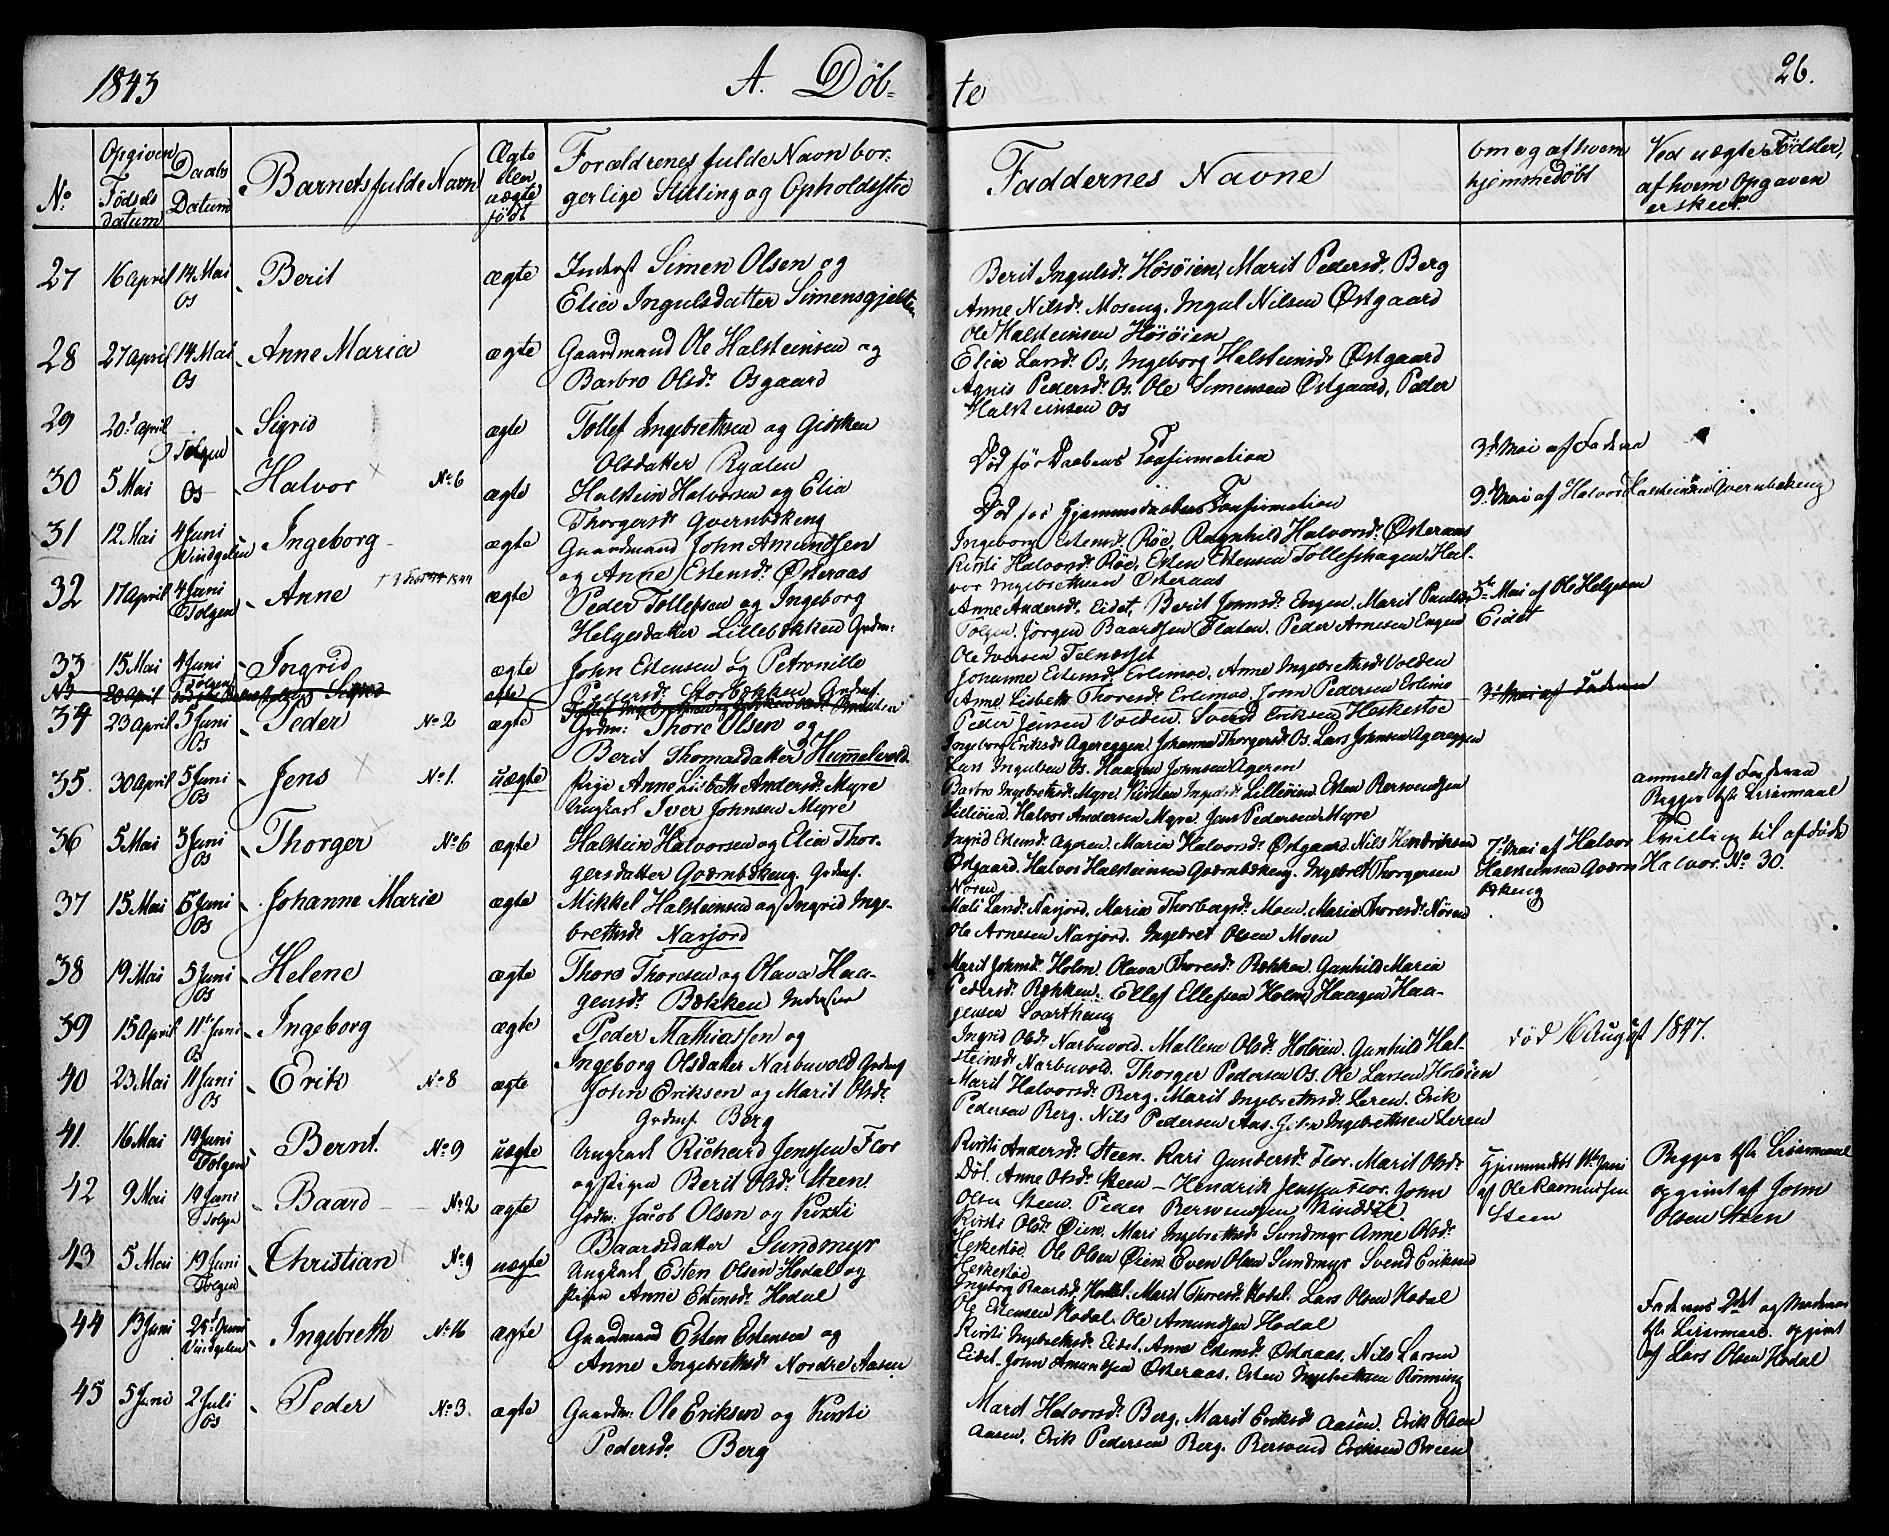 1843
A. Døb-
te
26.
No
Opgiven Fødsels datum
Daabs Datum
Barnets fulde Navn
Ægte eller uægte født
Forældrenes fulde Navn borgerlige Stilling og Opholdssted
Faddernes Navne
om og af hvem hjemmedøbt
Ved uægte Fødsler, af hvem Opgaven er skeet.
27 16 April 14 Mai Os Berit ægte Inderst Simen Olsen og
Elia Ingulsdatter Simensgjelten
Berit Ingulsdr. Høsøien, Marit Pedersdr. Berg
Anne Nilsdr. Moseng. Ingul Nilsen Østgaard
Ole Halsteinsen Høsøien
28 27 April 14 Mai Os Anne Maria ægte Gaardmand Ole Halsteinsen og
Barbro Olsdr. Osgaard
Elia Larsdr. Os, Ingeborg Halsteinsdr. Østgaard
Agnis Pedersdr. Os. Ole Simensen Østgaard, Peder
Halsteinsen Os
29 20d April Tolgen Sigrid ægte Tollef Ingebrethsen og Gisken
Olsdatter Ryalen
Død før Daabens Confirmation
3d Mai af Faderen
30 5 Mai Os Halvor No 6 ægte Halstein Halvorsen og Elia
Thorgersdr. Qvernbækeng
Død før Hjemmedaabens Confirmation
9d Mai af Halvor Halsteinsen Qvernbækeng
31 12 Mai 4 Juni Vindgelen Ingeborg ægte Gaardmand John Amundsen
og Anne Estensdr. Østeraas
Ingeborg Estensdr. Røe, Ragnhild Halvorsdr. Østeraas
Kirsti Halvorsdr. Røe, Esten Estensen Tollefshagen, Hal-
vor Ingebrethsen Østeraas
32 17 April 4 Juni Tolgen Anne 1844 ægte Peder Tollefsen og Ingeborg
Helgesdatter Lillebækken Grdm:
Anne Andersdr. Eidet, Berit Jonsdr. Engen. Marit Paulsdr.
Tolgen. Jørgen Baardsen Flaten. Peder Arnesen Engen
Ole Iversen Telnesset
5te Mai af Ole Helgesen
Eidet
33 15 Mai 4 Juni Tolgen Ingrid ægte John Estensen og Petronille
Pedersdr. Storbækken Grdmf.
Johanne Estensdr. Erlimoe, Anne Ingebrethsdr. Volden
Anne Lisbeth Thoresdr. Erlimoe, John Pedersen Erlimo
Peder Jensen Volden. Svend Eriksen Heskestøe
No 20 April Sigrid ægte 3d Mai af Faderen
34 23 April 5 Juni Os Peder No 2 ægte Grdm: Thore Olsen og
Berit Thomasdatter Hummelvold
Ingeborg Eriksdr. Agereggen, Johanna Thorgersdr. Os. Lars Johnsen Agereggen
Lars Ingulsen Os. Haagen Johnsen Ageren
35. 30 April 5 Juni Os Jens No 1. uægte Pige Anne Lisbeth Andersdr. Myre
Ungkarl Iver Johnsen Myre
Barbro Ingebrethsdr. Myre. Kirsten Ingulsdr. Lilleøien Esten Bersvendsen
Lilleøien, Halvor Andersen Myre, Jens Pedersen Myre
anmeldt af Faderen
Begges 1ste Leiermaal
36 5 Mai 5 Juni Os Thorger No 6 ægte Halstein Halvorsen og Elia Thor-
gersdatter Qvernbækeng. Grdmf.
Ingrid Estensdr. Ageren. Maria Halvorsdr. Østgaard, Nils Henriksen
Østgaard. Halvor Halsteinsen Qvernbækeng. Ingebret Thorgersen
Nøren
7d Mai af Halvor
Halsteinsen Qvern
bækeng
Tvilling til afdøde
Halvor. No 30.
37 15 Mai 5 Juni Os Johanne Marie ægte Mikkel Halsteinsen og Ingrid Inge-
brethsdr. Narjord
Mali Larsdr. Narjord. Maria Thorbergsdr. Moen. Maria Thoresdr. Nøren
Ole Arnesen Narjord. Ingebret Olsen Moen
38 19 Mai 5 Juni Os Helene ægte Thore Thoresen og Olava Haa-
gensdr. Bækken Inderster
Marit Johnsdr. Holm. Olava Thoresdr. Bækken. Gunhild Maria
Pedersdr. Bækken. Ellef Ellefsen Holm, Haagen Haa-
gensen Svarthaug
39 15 April 11te Juni Os Ingeborg ægte Peder Mathiassen og
Ingeborg Olsdatter Narbuvold Grdmf
Ingrid Olsdr. Narbuvold. Mallene Olsdr. Holøien. Gunhild Hal-
steinsdr. Narbuvold. Thorger Pedersen Os. Ole Larsen Holøien
død 16 August 1847.
40 23 Mai 11 Juni Os Erik No 8 ægte John Eriksen og Marit Olsdr.
Grdmf. Berg
Marit Halvorsdr. Berg. Marit Ingebrethsdr. Leren. Erik
Pedersen Berg. Nils Pedersen Aas. John Ingebrethsen Leren
41. 16 Mai 19 Juni Tolgen Bernt. No 9 uægte Ungkarl Richard Jenssen Flor
og Pigen Berit Olsdr. Steen
Kirsti Andersdr. Steen. Kari Gundersdr. Flor. Marit Olsdr.
Døl. Anne Olsdr. Steen - Hendrik Jenssen Flor. John
Olsen Steen. Peder Bersvendsen Kindsøl.
Hjemmedøbt Juni
af Ole Rasmussen
Steen
Begges 1ste Leiermaal
opgivet af John
Olsen Steen
42 9 Mai 19 Juni Tolgen Baard No 2 ægte Grdm: Jacob Olsen og Kirsti
Baardsdatter Sundmyr
Kirsti Olsdr. Øien, Mari Ingebrethsdr. Sundmyr Anne Olsdr.
Heskestøe, Ole Olsen Øien Even Olsen Sundmyr Svend Eriksen
Heskestøe
43 5 Mai 19 Juni Tolgen Christian No 9 uægte Ungkarl Esten Olsen Hodal og
Pigen Anne Estensdr. Hodal
Ingeborg Baardsdr. Hodal. Marit Thoresdr. Hodal. Lars Olsen Hodal
Ole Estensen Hodal. Ole Amundsen Hodal
Faderens 2det og Moderens
1ste Leiermaal. opgivet
af Lars Olsen Hodal
44 13 Juni 25d Juni Vindgelen Ingebreth No 16 ægte Gaardmand Esten Estensen og
Anne Ingebrethsdr. Nordre Aasen
Kirsti Ingebrethsdr. Eidet. Anne Estensdr. Østeraas. Nils Larsen
Eidet. John Amundsen Østeraas. Esten Ingebrethsen Rønning
45 5 Juni 2 Juli Os Peder No 3. ægte Gaardm: Ole Eriksen og Kirsti
Pedersdr. Berg
Marit Halvorsdr. Berg, Marit Eriksdr. Aasen. Erik Olsen
Aasen. Erik Pedersen Berg. Bersvend Eriksen Breen